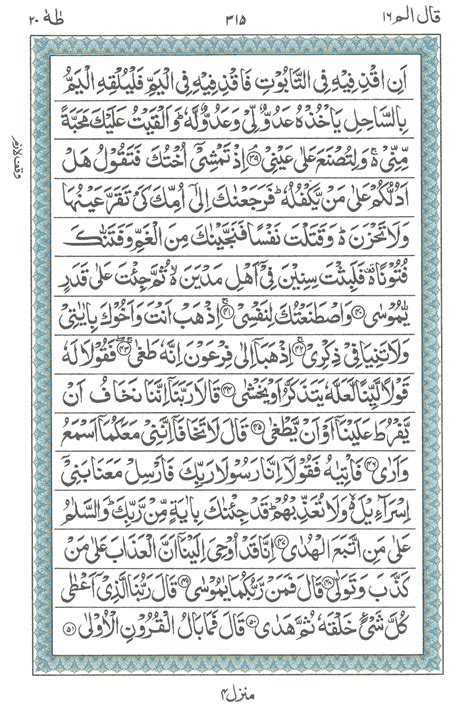 قال الم ١٦ ٣١٥ طٰهٰ ٢٠
اَنِ اقْذِفِيْهِ فِى التَّابُوْتِ فَاقْذِفِيْهِ فِى الْيَمِّ فَلْيُلْقِهِ الْيَمُّ
بِالسَّاحِلِ يَاْخُذْهُ عَدُوٌّ لِّىْ وَعَدُوٌّ لَّهٗ ؕ وَاَلْقَيْتُ عَلَيْكَ مَحَبَّةً
مِّنِّىْ ۚ۬ وَلِتُصْنَعَ عَلٰى عَيْنِىْ ۘ ﴿۳۹﴾ اِذْ تَمْشِىْۤ اُخْتُكَ فَتَقُوْلُ هَلْ
اَدُلُّكُمْ عَلٰى مَنْ يَّكْفُلُهٗ ؕ فَرَجَعْنٰكَ اِلٰٓى اُمِّكَ كَىْ تَقَرَّ عَيْنُهَا
وَلَا تَحْزَنَ ؕ۬ وَقَتَلْتَ نَفْسًا فَنَجَّيْنٰكَ مِنَ الْغَمِّ وَفَتَنّٰكَ
فُتُوْنًا ۬ۚ فَلَبِثْتَ سِنِيْنَ فِىْۤ اَهْلِ مَدْيَنَ ۙ۬ ثُمَّ جِئْتَ عَلٰى قَدَرٍ
يّٰمُوْسٰى ﴿۴۰﴾ وَاصْطَنَعْتُكَ لِنَفْسِىْ ۚ ﴿۴۱﴾ اِذْهَبْ اَنْتَ وَاَخُوْكَ بِاٰيٰتِىْ
وَلَا تَنِيَا فِىْ ذِكْرِىْ ۚ ﴿۴۲﴾ اِذْهَبَاۤ اِلٰى فِرْعَوْنَ اِنَّهٗ طَغٰى ۚۖ ﴿۴۳﴾ فَقُوْلَا لَهٗ
قَوْلًا لَّيِّنًا لَّعَلَّهٗ يَتَذَكَّرُ اَوْ يَخْشٰى ﴿۴۴﴾ قَالَا رَبَّنَاۤ اِنَّنَا نَخَافُ اَنْ
يَّفْرُطَ عَلَيْنَاۤ اَوْ اَنْ يَّطْغٰى ﴿۴۵﴾ قَالَ لَا تَخَافَاۤ اِنَّنِىْ مَعَكُمَاۤ اَسْمَعُ
وَاَرٰى ﴿۴۶﴾ فَاْتِيٰهُ فَقُوْلَاۤ اِنَّا رَسُوْلَا رَبِّكَ فَاَرْسِلْ مَعَنَا بَنِىْۤ
اِسْرَآءِيْلَ ۙ۬ وَلَا تُعَذِّبْهُمْ ؕ قَدْ جِئْنٰكَ بِاٰيَةٍ مِّنْ رَّبِّكَ ؕ وَالسَّلٰمُ
عَلٰى مَنِ اتَّبَعَ الْهُدٰى ﴿۴۷﴾ اِنَّا قَدْ اُوْحِىَ اِلَيْنَاۤ اَنَّ الْعَذَابَ عَلٰى مَنْ
كَذَّبَ وَتَوَلّٰى ﴿۴۸﴾ قَالَ فَمَنْ رَّبُّكُمَا يٰمُوْسٰى ﴿۴۹﴾ قَالَ رَبُّنَا الَّذِىْۤ اَعْطٰى
كُلَّ شَىْءٍ خَلْقَهٗ ثُمَّ هَدٰى ﴿۵۰﴾ قَالَ فَمَا بَالُ الْقُرُوْنِ الْاُوْلٰى ﴿۵۱﴾
وقف لازم
منزل ۴